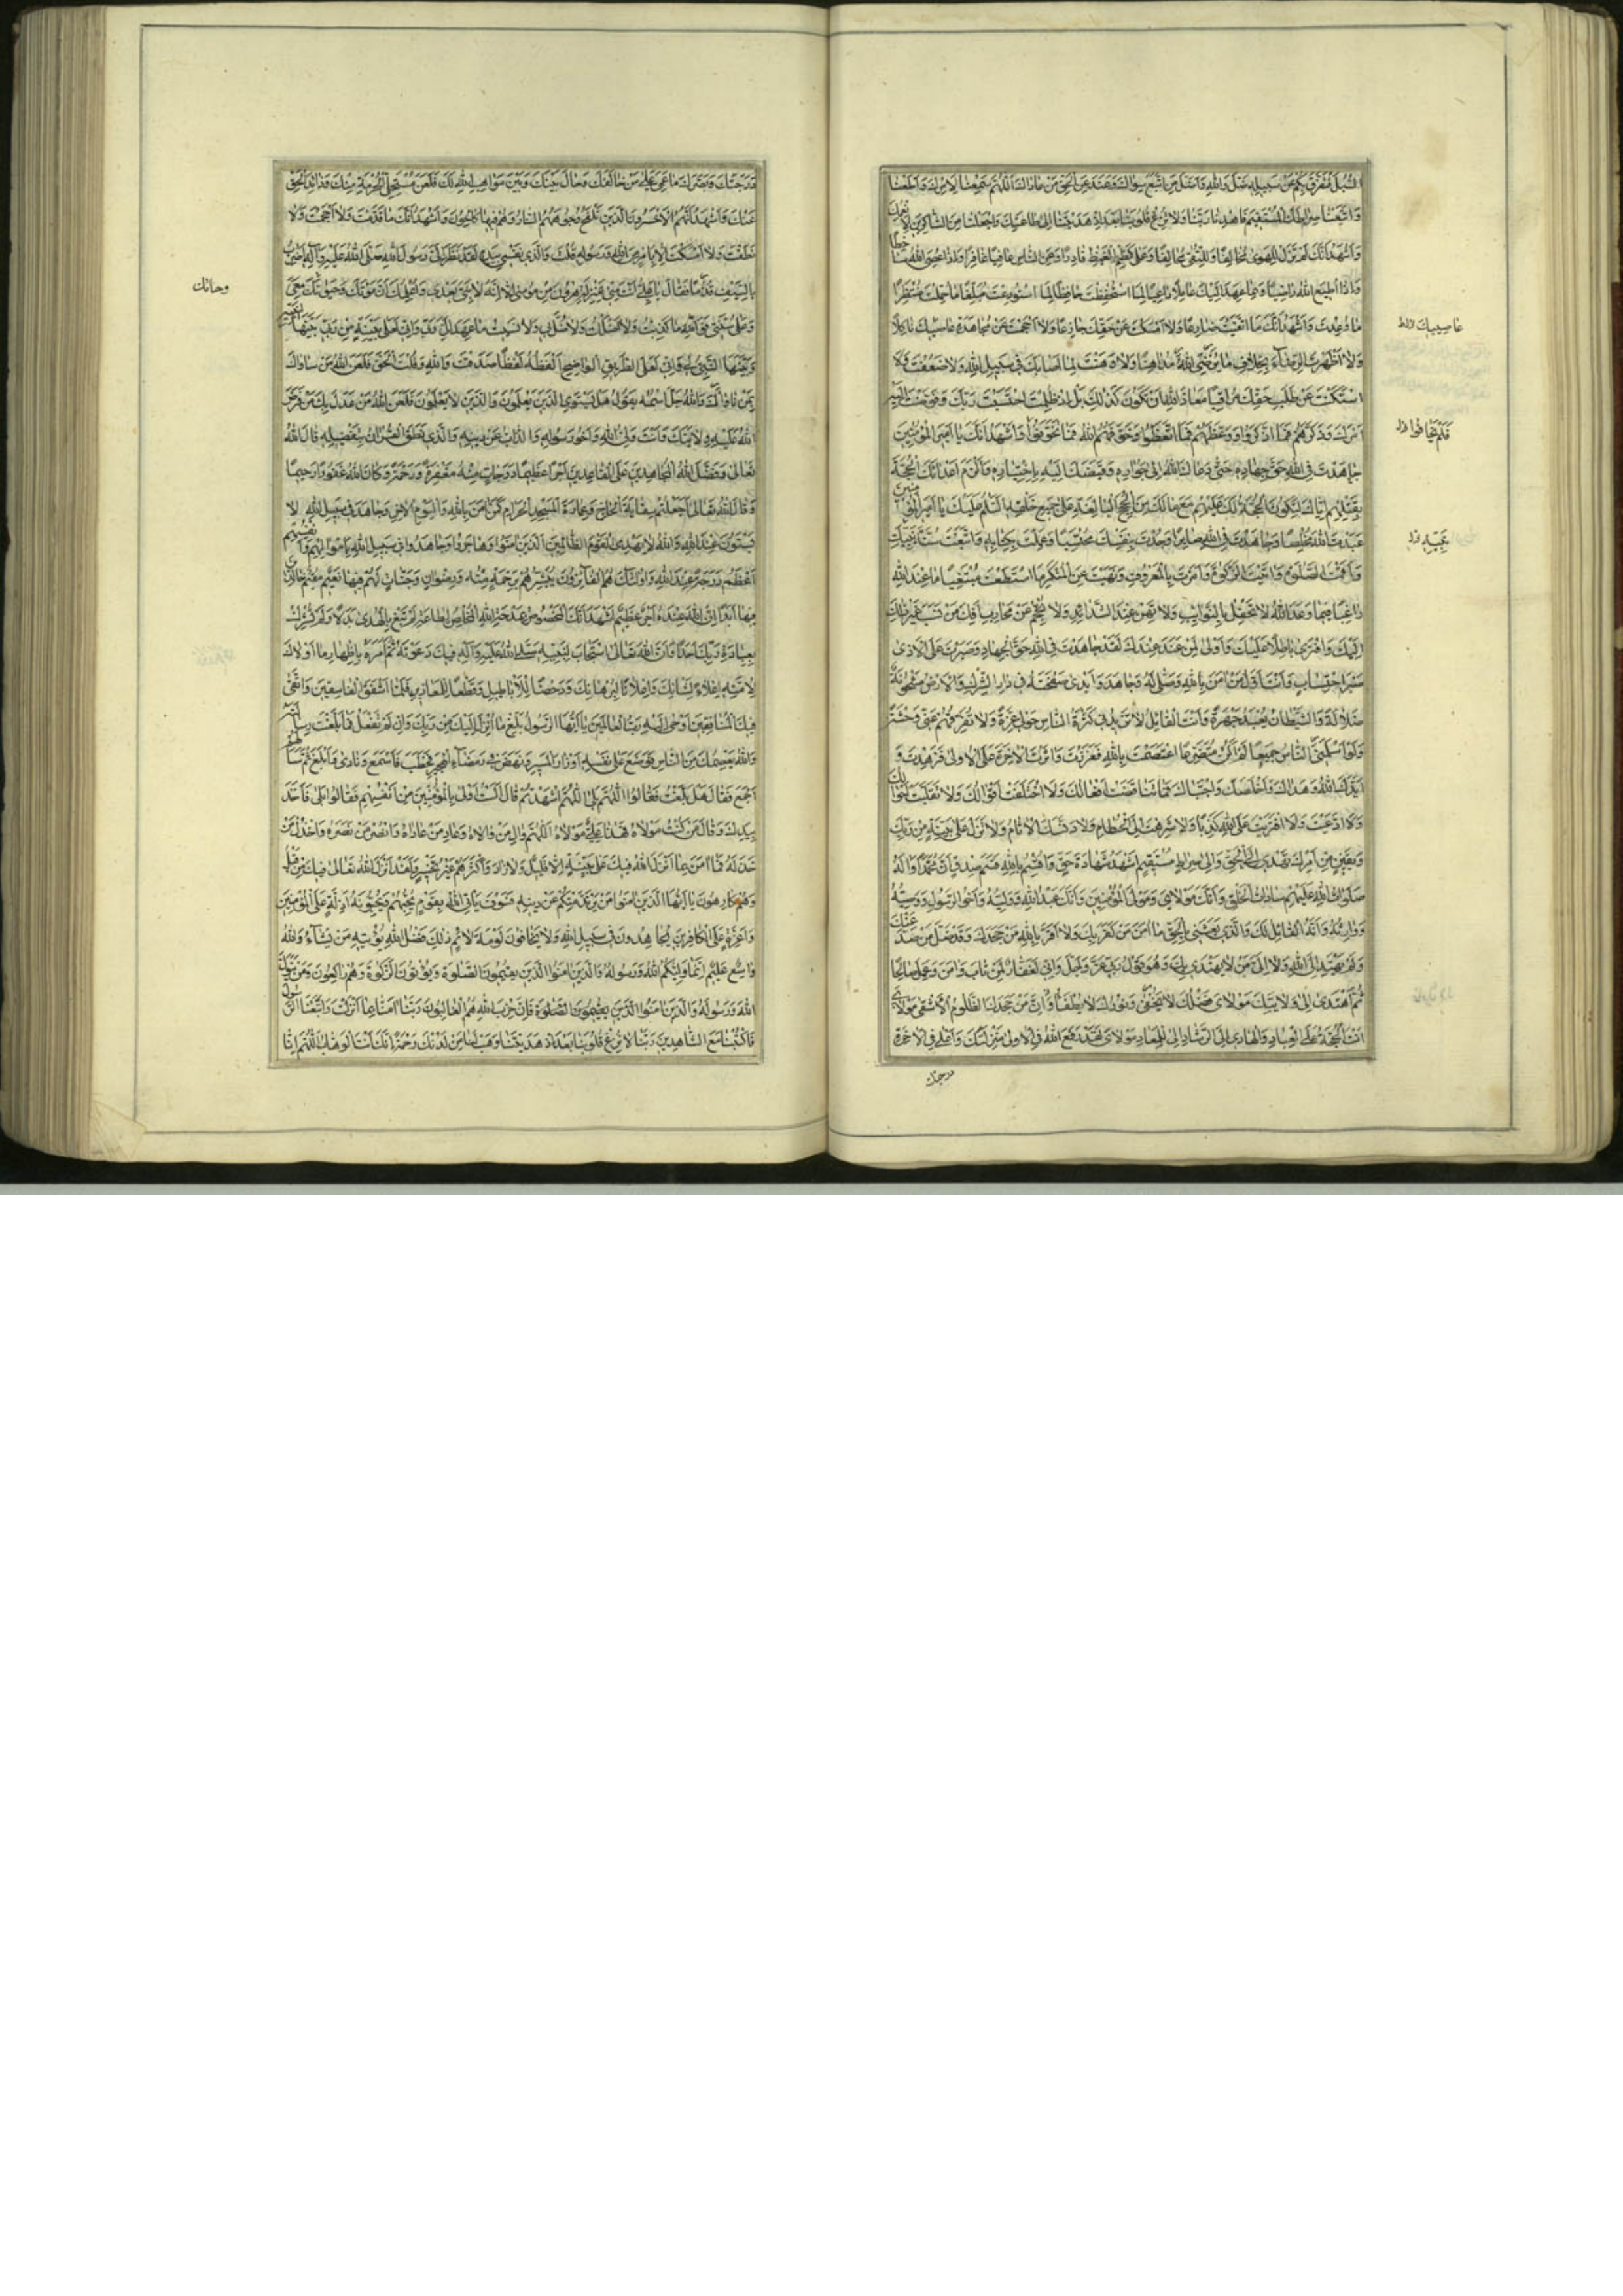 السُّبُلَ فَتَفَرَّقَ بِكُمْ عَنْ سَبِيلِهِ ضَلَّ وَاللهِ وَأَضَلَّ مَنِ اتَّبَعَ سِوَاكَ وَعَنَدَ عَنِ الْحَقِّ مَنْ عَادَاكَ اَللّٰهُمَّ سَمِعْنَا لِأَمْرِكَ وَأَطَعْنَا
وَاتَّبَعْنَا صِرَاطَكَ الْمُسْتَقِيمَ فَاهْدِنَا رَبَّنَا وَلَا تُزِغْ قُلُوبَنَا بَعْدَ إِذْ هَدَيْتَنَا إِلَى طَاعَتِكَ وَاجْعَلْنَا مِنَ الشَّاكِرِينَ لِأَنْعُمِكَ
وَأَشْهَدُ أَنَّكَ لَمْ تَزَلْ لِلْهَوَى مُخَالِفًا وَلِلتُّقَى مُحَالِفًا وَعَلَى كَظْمِ الْغَيْظِ قَادِرًا وَعَنِ النَّاسِ عَافِيًا غَافِرًا وَإِذَا عُصِيَ اللهُ سَاخِطًا
وَإِذَا أُطِيعَ اللهُ رَاضِيًا وَبِمَا عَهِدَ إِلَيْكَ عَامِلًا رَاعِيًا لِمَا اسْتُحْفِظْتَ حَافِظًا لِمَا اسْتُودِعْتَ مُبَلِّغًا مَا حُمِّلْتَ مُنْتَظِرًا
مَا وُعِدْتَ وَأَشْهَدُ أَنَّكَ مَا اتَّقَيْتَ ضَارِعًا وَلَا أَمْسَكْتَ عَنْ حَقِّكَ جَازِعًا وَلَا أَحْجَمْتَ عَنْ مُجَاهَدَةِ غَاصِبِيكَ نَاكِلًا
وَلَا أَظْهَرْتَ الرِّضَاءَ بِخِلَافِ مَا يُرْضِي اللهَ مُدَاهِنًا وَلَا وَهَنْتَ لِمَا أَصَابَكَ فِي سَبِيلِ اللهِ وَلَا ضَعُفْتَ وَلَا
اسْتَكَنْتَ عَنْ طَلَبِ حَقِّكَ مُرَاقِبًا مَعَاذَ اللهِ أَنْ تَكُونَ كَذٰلِكَ بَلْ إِذْ ظُلِمْتَ احْتَسَبْتَ رَبَّكَ وَفَوَّضْتَ إِلَيْهِ
أَمْرَكَ وَذَكَّرْتَهُمْ فَمَا ادَّكَرُوا وَوَعَظْتَهُمْ فَمَا اتَّعَظُوا وَخَوَّفْتَهُمُ اللهَ فَمَا تَخَوَّفُوا وَأَشْهَدُ أَنَّكَ يَا أَمِيرَ الْمُؤْمِنِينَ
جَاهَدْتَ فِي اللهِ حَقَّ جِهَادِهِ حَتَّى دَعَاكَ اللهُ إِلَى جِوَارِهِ وَقَبَضَكَ إِلَيْهِ بِاخْتِيَارِهِ وَأَلْزَمَ أَعْدَاءَكَ الْحُجَّةَ
بِقَتْلِهِمْ إِيَّاكَ لِتَكُونَ الْحُجَّةُ لَكَ عَلَيْهِمْ مَعَ مَا لَكَ مِنَ الْحُجَجِ الْبَالِغَةِ عَلَى جَمِيعِ خَلْقِهِ اَلسَّلَامُ عَلَيْكَ يَا أَمِيرَ الْمُؤْمِنِينَ
عَبَدْتَ اللهَ مُخْلِصًا وَجَاهَدْتَ فِي اللهِ صَابِرًا وَجُدْتَ بِنَفْسِكَ مُحْتَسِبًا وَعَمِلْتَ بِكِتَابِهِ وَاتَّبَعْتَ سُنَّةَ نَبِيِّكَ
وَأَقَمْتَ الصَّلٰوةَ وَآتَيْتَ الزَّكٰوةَ وَأَمَرْتَ بِالْمَعْرُوفِ وَنَهَيْتَ عَنِ الْمُنْكَرِ مَا اسْتَطَعْتَ مُبْتَغِيًا مَا عِنْدَ اللهِ
رَاغِبًا فِيمَا وَعَدَ اللهُ لَا تَحْفِلُ بِالنَّوَائِبِ وَلَا تَهِنُ عِنْدَ الشَّدَائِدِ وَلَا تُحْجِمُ عَنْ مُحَارِبٍ أَفِكَ مَنْ نَسَبَ غَيْرَ ذٰلِكَ
إِلَيْكَ وَافْتَرَى بَاطِلًا عَلَيْكَ وَأَوْلَى لِمَنْ عَنَدَ عَنْكَ لَقَدْ جَاهَدْتَ فِي اللهِ حَقَّ الْجِهَادِ وَصَبَرْتَ عَلَى الْأَذَى
صَبْرَ احْتِسَابٍ وَأَنْتَ أَوَّلُ مَنْ آمَنَ بِاللهِ وَصَلَّى لَهُ وَجَاهَدَ وَأَبْدَى صَفْحَتَهُ فِي دَارِ الشِّرْكِ وَالْأَرْضُ مَشْحُونَةٌ
ضَلَالَةً وَالشَّيْطَانُ يُعْبَدُ جَهْرَةً وَأَنْتَ الْقَائِلُ لَا تَزِيدُنِي كَثْرَةُ النَّاسِ حَوْلِي عِزَّةً وَلَا تَفَرُّقُهُمْ عَنِّي وَحْشَةً
وَلَوْ أَسْلَمَنِي النَّاسُ جَمِيعًا لَمْ أَكُنْ مُتَضَرِّعًا اعْتَصَمْتَ بِاللهِ فَعَزَزْتَ وَآثَرْتَ الْآخِرَةَ عَلَى الْأُولَى فَزَهِدْتَ وَ
أَيَّدَكَ اللهُ وَهَدَاكَ وَأَخْلَصَكَ وَاجْتَبَاكَ فَمَا تَنَاقَضَتْ أَفْعَالُكَ وَلَا اخْتَلَفَتْ أَقْوَالُكَ وَلَا تَقَلَّبَتْ أَحْوَالُكَ
وَلَا ادَّعَيْتَ وَلَا افْتَرَيْتَ عَلَى اللهِ كَذِبًا وَلَا شَرِهْتَ إِلَى الْحُطَامِ وَلَا دَنَّسَكَ الْآثَامُ وَلَمْ تَزَلْ عَلَى بَيِّنَةٍ مِنْ رَبِّكَ
وَيَقِينٍ مِنْ أَمْرِكَ تَهْدِي إِلَى الْحَقِّ وَإِلَى صِرَاطٍ مُسْتَقِيمٍ أَشْهَدُ شَهَادَةَ حَقٍّ وَأُقْسِمُ بِاللهِ قَسَمَ صِدْقٍ أَنَّ مُحَمَّدًا وَآلَهُ
صَلَوَاتُ اللهِ عَلَيْهِمْ سَادَاتُ الْخَلْقِ وَأَنَّكَ مَوْلَايَ وَمَوْلَى الْمُؤْمِنِينَ وَأَنَّكَ عَبْدُ اللهِ وَوَلِيُّهُ وَأَخُو الرَّسُولِ وَوَصِيُّهُ
وَوَارِثُهُ وَأَنَّهُ الْقَائِلُ لَكَ وَالَّذِي بَعَثَنِي بِالْحَقِّ مَا آمَنَ مَنْ كَفَرَ بِكَ وَلَا أَقَرَّ بِاللهِ مَنْ جَحَدَكَ وَقَدْ ضَلَّ مَنْ صَدَّ عَنْكَ
وَلَمْ يَهْتَدِ إِلَى اللهِ وَلَا إِلَيَّ مَنْ لَا يَهْتَدِي بِكَ وَهُوَ قَوْلُ رَبِّي عَزَّ وَجَلَّ وَإِنِّي لَغَفَّارٌ لِمَنْ تَابَ وَآمَنَ وَعَمِلَ صَالِحًا
ثُمَّ اهْتَدَى إِلَى وِلَايَتِكَ مَوْلَايَ فَضْلُكَ لَا يَخْفَى وَنُورُكَ لَا يُطْفَأُ وَأَنَّ مَنْ جَحَدَكَ الظَّلُومُ الْأَشْقَى مَوْلَايَ
أَنْتَ الْحُجَّةُ عَلَى الْعِبَادِ وَالْهَادِي إِلَى الرَّشَادِ مَوْلَايَ لَقَدْ رَفَعَ اللهُ فِي الْأُولَى مَنْزِلَتَكَ وَأَعْلَى فِي الْآخِرَةِ
درجتك
غاصبيك
فلم يخافوا
نبيه
دَرَجَتَكَ وَبَصَّرَكَ مَا عَمِيَ عَلَى مَنْ خَالَفَكَ وَحَالَ بَيْنَكَ وَبَيْنَ مَوَاهِبِ اللهِ لَكَ فَلَعَنَ اللهُ مُسْتَحِلِّي الْحُرْمَةِ مِنْكَ وَذَائِدِي الْحَقِّ
عَنْكَ وَأَشْهَدُ أَنَّهُمُ الْأَخْسَرُونَ الَّذِينَ تَلْفَحُ وُجُوهَهُمُ النَّارُ وَهُمْ فِيهَا كَالِحُونَ وَأَشْهَدُ أَنَّكَ مَا أَقْدَمْتَ وَلَا أَحْجَمْتَ وَلَا
نَطَقْتَ وَلَا أَمْسَكْتَ إِلَّا بِأَمْرٍ مِنَ اللهِ وَرَسُولِهِ قُلْتَ وَالَّذِي نَفْسِي بِيَدِهِ لَقَدْ نَظَرَ إِلَيَّ رَسُولُ اللهِ صَلَّى اللهُ عَلَيْهِ وَآلِهِ أَضْرِبُ
بِالسَّيْفِ قُدُمًا فَقَالَ يَا عَلِيُّ أَنْتَ مِنِّي بِمَنْزِلَةِ هٰرُونَ مِنْ مُوسَى إِلَّا أَنَّهُ لَا نَبِيَّ بَعْدِي وَأُعْلِمُكَ أَنَّ مَوْتَكَ وَحَيٰوتَكَ مَعِي
وَعَلَى سُنَّتِي فَوَاللهِ مَا كَذِبْتُ وَلَا ضَلَلْتُ وَلَا ضُلَّ بِي وَلَا نَسِيتُ مَا عَهِدَ إِلَيَّ رَبِّي وَإِنِّي لَعَلَى بَيِّنَةٍ مِنْ رَبِّي بَيَّنَهَا لِنَبِيِّهِ
وَبَيَّنَهَا النَّبِيُّ لِي وَإِنِّي لَعَلَى الطَّرِيقِ الْوَاضِحِ أَلْفَظُهُ لَفْظًا صَدَقْتَ وَاللهِ وَقُلْتَ الْحَقَّ فَلَعَنَ اللهُ مَنْ سَاوَاكَ
بِمَنْ نَاوَاكَ وَاللهُ جَلَّ اسْمُهُ يَقُولُ هَلْ يَسْتَوِي الَّذِينَ يَعْلَمُونَ وَالَّذِينَ لَا يَعْلَمُونَ فَلَعَنَ اللهُ مَنْ عَدَلَ بِكَ مَنْ فَرَضَ
اللهُ عَلَيْهِ وِلَايَتَكَ وَأَنْتَ وَلِيُّ اللهِ وَأَخُو رَسُولِهِ وَالذَّابُّ عَنْ دِينِهِ وَالَّذِي نَطَقَ الْقُرْآنُ بِتَفْضِيلِهِ قَالَ اللهُ
تَعَالَى وَفَضَّلَ اللهُ الْمُجَاهِدِينَ عَلَى الْقَاعِدِينَ أَجْرًا عَظِيمًا دَرَجَاتٍ مِنْهُ وَمَغْفِرَةً وَرَحْمَةً وَكَانَ اللهُ غَفُورًا رَحِيمًا
وَقَالَ اللهُ تَعَالَى أَجَعَلْتُمْ سِقَايَةَ الْحَاجِّ وَعِمَارَةَ الْمَسْجِدِ الْحَرَامِ كَمَنْ آمَنَ بِاللهِ وَالْيَوْمِ الْآخِرِ وَجَاهَدَ فِي سَبِيلِ اللهِ لَا
يَسْتَوُونَ عِنْدَ اللهِ وَاللهُ لَا يَهْدِي الْقَوْمَ الظَّالِمِينَ الَّذِينَ آمَنُوا وَهَاجَرُوا وَجَاهَدُوا فِي سَبِيلِ اللهِ بِأَمْوَالِهِمْ وَأَنْفُسِهِمْ
أَعْظَمُ دَرَجَةً عِنْدَ اللهِ وَأُولٰئِكَ هُمُ الْفَائِزُونَ يُبَشِّرُهُمْ رَبُّهُمْ بِرَحْمَةٍ مِنْهُ وَرِضْوَانٍ وَجَنَّاتٍ لَهُمْ فِيهَا نَعِيمٌ مُقِيمٌ خَالِدِينَ
فِيهَا أَبَدًا إِنَّ اللهَ عِنْدَهُ أَجْرٌ عَظِيمٌ أَشْهَدُ أَنَّكَ الْمَخْصُوصُ بِمِدْحَةِ اللهِ الْمُخْلِصُ لِطَاعَةِ اللهِ لَمْ تَبْغِ بِالْهُدَى بَدَلًا وَلَمْ تُشْرِكْ
بِعِبَادَةِ رَبِّكَ أَحَدًا وَأَنَّ اللهَ تَعَالَى اسْتَجَابَ لِنَبِيِّهِ صَلَّى اللهُ عَلَيْهِ وَآلِهِ فِيكَ دَعْوَتَهُ ثُمَّ أَمَرَهُ بِإِظْهَارِ مَا أَوْلَاكَ
لِأُمَّتِهِ إِعْلَاءً لِشَأْنِكَ وَإِعْلَانًا لِبُرْهَانِكَ وَدَحْضًا لِلْأَبَاطِيلِ وَقَطْعًا لِلْمَعَاذِيرِ فَلَمَّا أَشْفَقَ مِنْ فِتْنَةِ الْفَاسِقِينَ وَاتَّقَى
فِيكَ الْمُنَافِقِينَ أَوْحَى إِلَيْهِ رَبُّ الْعَالَمِينَ يَا أَيُّهَا الرَّسُولُ بَلِّغْ مَا أُنْزِلَ إِلَيْكَ مِنْ رَبِّكَ وَإِنْ لَمْ تَفْعَلْ فَمَا بَلَّغْتَ رِسَالَتَهُ
وَاللهُ يَعْصِمُكَ مِنَ النَّاسِ فَوَضَعَ عَلَى نَفْسِهِ أَوْزَارَ الْمَسِيرِ وَنَهَضَ فِي رَمْضَاءِ الْهَجِيرِ فَخَطَبَ فَأَسْمَعَ وَنَادَى فَأَبْلَغَ ثُمَّ سَأَلَهُمْ
أَجْمَعَ فَقَالَ هَلْ بَلَّغْتُ فَقَالُوا اللّٰهُمَّ بَلَى فَقَالَ اللّٰهُمَّ اشْهَدْ ثُمَّ قَالَ أَلَسْتُ أَوْلَى بِالْمُؤْمِنِينَ مِنْ أَنْفُسِهِمْ فَقَالُوا بَلَى فَأَخَذَ
بِيَدِكَ وَقَالَ مَنْ كُنْتُ مَوْلَاهُ فَهٰذَا عَلِيٌّ مَوْلَاهُ اَللّٰهُمَّ وَالِ مَنْ وَالَاهُ وَعَادِ مَنْ عَادَاهُ وَانْصُرْ مَنْ نَصَرَهُ وَاخْذُلْ مَنْ
خَذَلَهُ فَمَا آمَنَ بِمَا أَنْزَلَ اللهُ فِيكَ عَلَى نَبِيِّهِ إِلَّا قَلِيلٌ وَلَا زَادَ أَكْثَرَهُمْ غَيْرَ تَخْسِيرٍ وَلَقَدْ أَنْزَلَ اللهُ تَعَالَى فِيكَ مِنْ قَبْلُ
وَهُمْ كَارِهُونَ يَا أَيُّهَا الَّذِينَ آمَنُوا مَنْ يَرْتَدَّ مِنْكُمْ عَنْ دِينِهِ فَسَوْفَ يَأْتِي اللهُ بِقَوْمٍ يُحِبُّهُمْ وَيُحِبُّونَهُ أَذِلَّةٍ عَلَى الْمُؤْمِنِينَ
وَأَعِزَّةٍ عَلَى الْكَافِرِينَ يُجَاهِدُونَ فِي سَبِيلِ اللهِ وَلَا يَخَافُونَ لَوْمَةَ لَائِمٍ ذٰلِكَ فَضْلُ اللهِ يُؤْتِيهِ مَنْ يَشَاءُ وَاللهُ
وَاسِعٌ عَلِيمٌ إِنَّمَا وَلِيُّكُمُ اللهُ وَرَسُولُهُ وَالَّذِينَ آمَنُوا الَّذِينَ يُقِيمُونَ الصَّلٰوةَ وَيُؤْتُونَ الزَّكٰوةَ وَهُمْ رَاكِعُونَ وَمَنْ يَتَوَلَّ
اللهَ وَرَسُولَهُ وَالَّذِينَ آمَنُوا الَّذِينَ يُقِيمُونَ الصَّلٰوةَ فَإِنَّ حِزْبَ اللهِ هُمُ الْغَالِبُونَ رَبَّنَا آمَنَّا بِمَا أَنْزَلْتَ وَاتَّبَعْنَا الرَّسُولَ
فَاكْتُبْنَا مَعَ الشَّاهِدِينَ رَبَّنَا لَا تُزِغْ قُلُوبَنَا بَعْدَ إِذْ هَدَيْتَنَا وَهَبْ لَنَا مِنْ لَدُنْكَ رَحْمَةً إِنَّكَ أَنْتَ الْوَهَّابُ اَللّٰهُمَّ إِنَّا